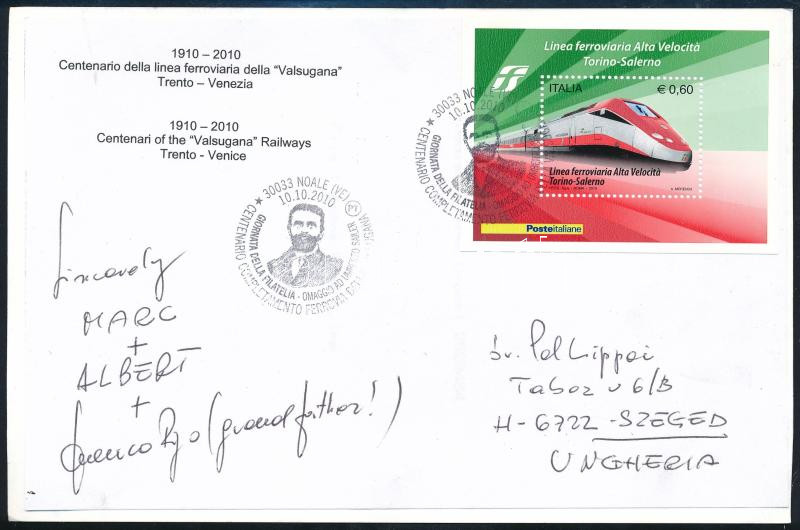 1910 – 2010
Centenario della linea ferroviaria della "Valsugana"
Trento – Venezia
1910 – 2010
Centenari of the "Valsugana" Railways
Trento - Venice
30033 NOALE (VE)
10.10.2010
GIORNATA DELLA FILATELIA - OMAGGIO AD
CENTENARIO COMPLETAMENTO FERROVIA
Sincerely
MARC
+
ALBERT
+
(grand father!)
Linea ferroviaria Alta Velocità
Torino-Salerno
ITALIA
€ 0,60
Linea ferroviaria Alta Velocità
Torino-Salerno
Posteitaliane
30033 NOALE
10.10.2010
GIORNATA DELLA FILATELIA - OMAGGIO AD
CENTENARIO COMPLETAMENTO FERROV
Pal Lippai
Tabor u 6/B
H-6722-SZEGED
UNGHERIA